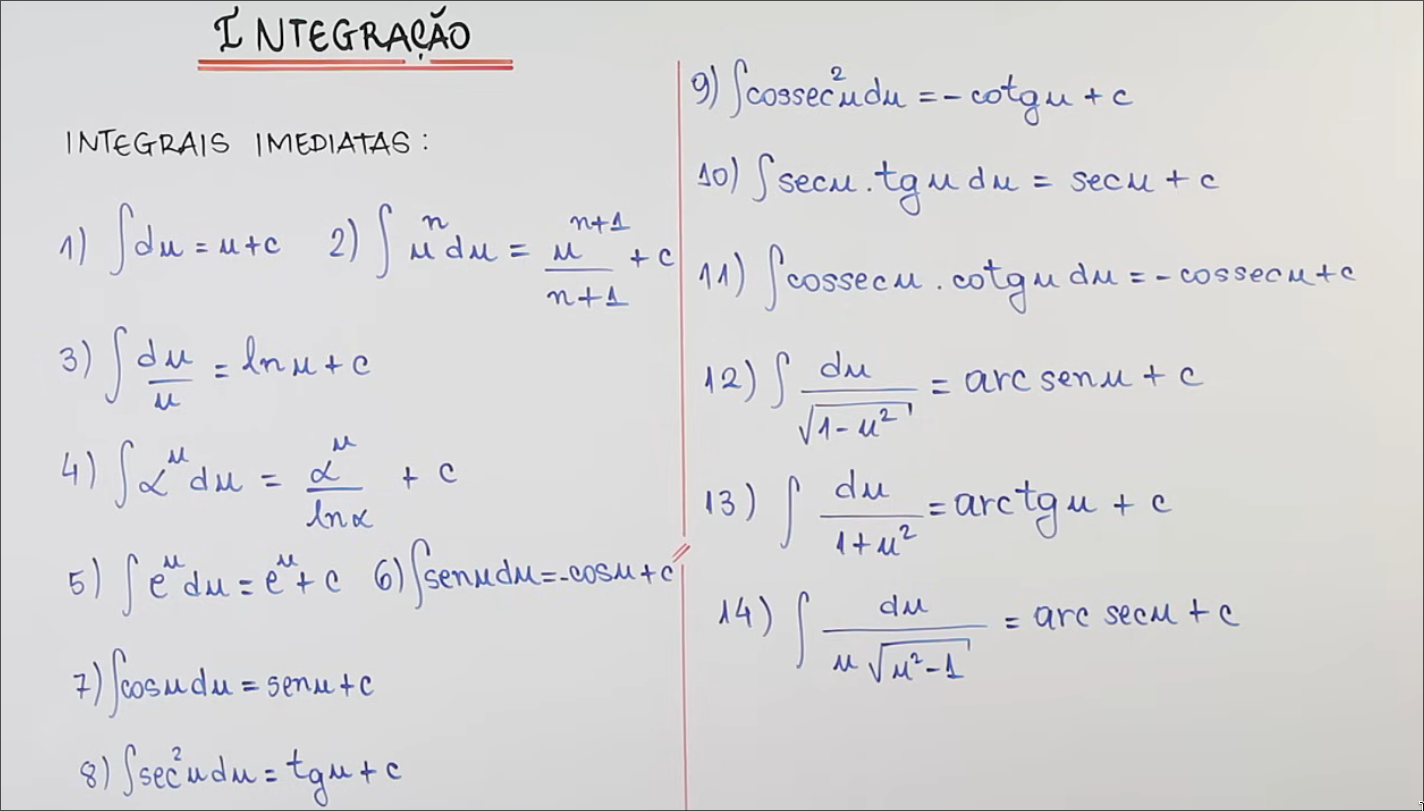 INTEGRAÇÃO
INTEGRAIS IMEDIATAS:
1) ∫du = u+c 2) ∫uⁿdu = uⁿ⁺¹/n+1 + c
3) ∫du/u = ln u + c
4) ∫αᵘdu = αᵘ/lnα + c
5) ∫eᵘdu = eᵘ + c 6) ∫senudu = -cosu + c
7) ∫cosudu = senu + c
8) ∫sec²udu = tgu + c
9) ∫cossec²udu = -cotgu + c
10) ∫secu.tgudu = secu + c
11) ∫cossecu.cotgudu = -cossecu + c
12) ∫du/√1-u² = arc senu + c
13) ∫du/1+u² = arctgu + c
14) ∫du/u√u²-1 = arc secu + c